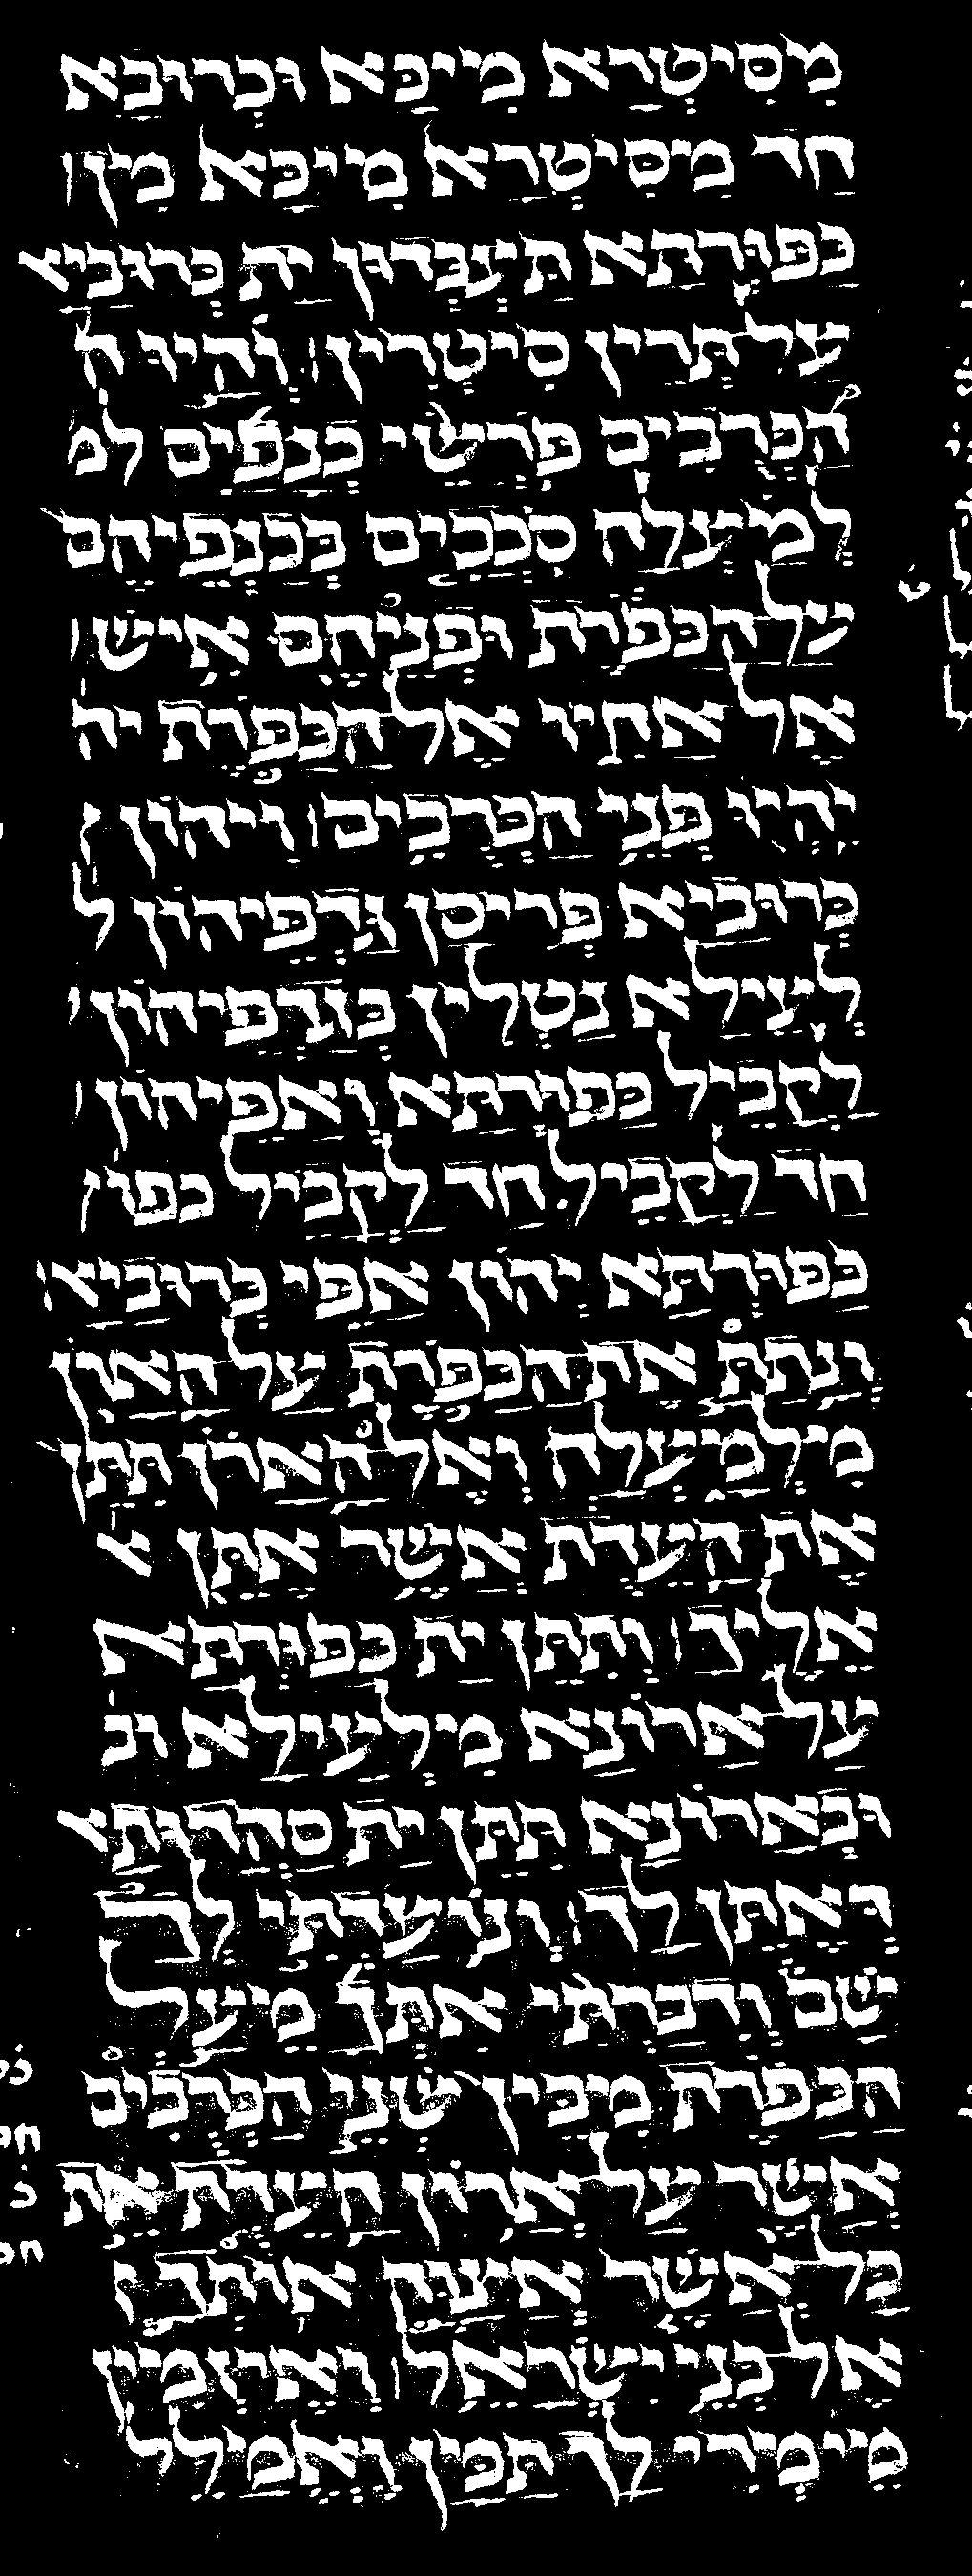 מִסִיטְרָא מִיכָּא וּכְרוּבָא
חַד מִסִיטְרָא מִיכָּא מִן
כַּפּוּרְתָּא תַּעְבְּדוּן יָת כְּרוּבַיָּ
עַל תְּרֵין סִיטְרִין וְהָיוּ ה
הַכְּרֻבִים פֹּרְשֵׂי כְנָפַיִם לְמ
לְמַעְלָה סֹכְכִים בְּכַנְפֵיהֶם
עַל הַכַּפֹּרֶת וּפְנֵיהֶם אִישׁ
אֶל אָחִיו אֶל הַכַּפֹּרֶת יה
יִהְיוּ פְּנֵי הַכְּרֻבִים וִיהוֹן
כְּרוּבַיָּא פְּרִיסָן גַּדְפֵיהוֹן ל
לְעֵילָא נְטָלִין בְּגַדְפֵיהוֹן
לָקֳבֵיל כַּפּוּרְתָּא וְאַפֵּיהוֹן
חַד לָקֳבֵיל חַד לָקֳבֵיל כפו
כַּפּוּרְתָּא יְהוֹן אַפֵּי כְּרוּבַיָּא
וְנָתַתָּ אֶת הַכַּפֹּרֶת עַל הָאָרֹן
מִלְמָעְלָה וְאֶל הָאָרֹן תִּתֵּן
אֶת הָעֵדֻת אֲשֶׁר אֶתֵּן
אֵלֶיךָ וְתִתֵּן יָת כַּפּוּרְתָּא
עַל אֲרוֹנָא מִלְעֵילָא וב
וּבַאֲרוֹנָא תִּתֵּן יָת סָהֲדוּתָ
דְּאֶתֵּן לָךְ וְנוֹעַדְתִּי לְךָ
שָׁם וְדִבַּרְתִּי אִתְּךָ מֵעַל
הַכַּפֹּרֶת מִבֵּין שְׁנֵי הַכְּרֻבִים
אֲשֶׁר עַל אֲרוֹן הָעֵדֻת אֵת
כָּל אֲשֶׁר אֲצַוֶּה אוֹתְךָ
אֶל בְּנֵי יִשְׂרָאֵל וַאֲזַמֵּין
מֵימְרִי לָךְ תַּמָּן וַאֲמַלֵּל